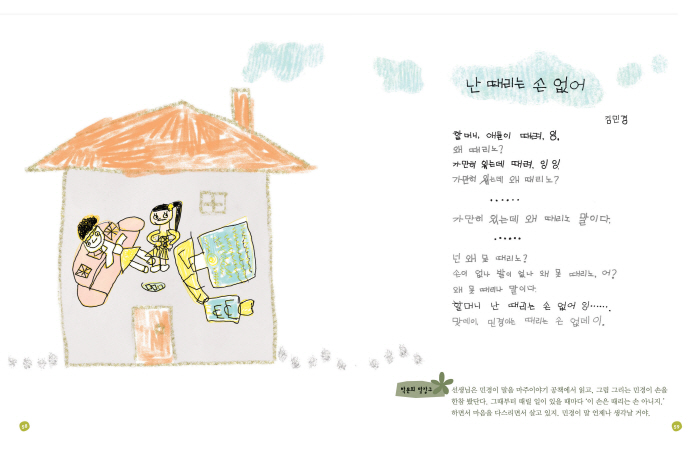 난 때리는 손 없어
김민경
할머니, 애들이 때려, 잉.
왜 때리노?
가만히 있는데 때려, 잉 잉
가만히 있는데 왜 때리노?
······
가만히 있는데 왜 때리노 말이다.
······
넌 왜 못 때리노?
손이 없나 발이 없나 왜 못 때리노, 어?
왜 못 때리나 말이다.
할머니 난 때리는 손 없어 잉······.
맞데이, 민경이는 때리는 손 없데이.
선생님은 민경이 말을 마주이야기 공책에서 읽고, 그림 그리는 민경이 손을
한참 봤단다. 그때부터 때릴 일이 있을 때마다 '이 손은 때리는 손 아니지.'
하면서 마음을 다스려면서 살고 있지. 민경이 말 언제나 생각날 거야.